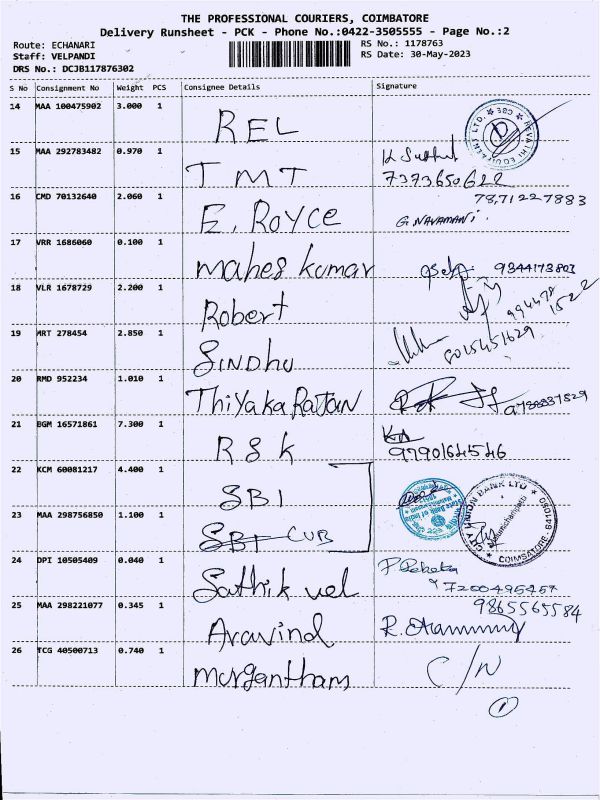 THE PROFESSIONAL COURIERS, COIMBATORE
Delivery Runsheet - PCK - Phone No.:0422-3505555 - Page No.:2
Route: ECHANARI
RS No.: 1178763
Staff: VELPANDI
RS Date: 30-May-2023
DRS No.: DCJB117876302
S No Consignment No Weight PCS Consignee Details Signature
14 MAA 100475902 3.000 1 REL
REVATHI EQUIPMENT LTD. CBE
15 MAA 292783482 0.970 1 TMT
7373650622
16 CMD 70132640 2.060 1 E. ROYCE G. NAVAMANI. 7871227883
17 VRR 1686060 0.100 1 mahes kumar 9344173803
18 VLR 1678729 2.200 1 Robert 994478
1522
19 MRT 278454 2.850 1 SINDHU 8015451629
20 RMD 952234 1.010 1 THIYAKARAJAN
21 BGM 16571861 7.300 1 RSK
9790164546
22 KCM 60081217 4.400 1 SBI
State Bank of India
CITY UNION BANK LTD
COIMBATORE - 641050
23 MAA 298756850 1.100 1 SBI CUB
24 DPI 10505409 0.040 1 Sathik vel
7200495457
25 MAA 298221077 0.345 1 Aravind 9865565584
26 TCG 40500713 0.740 1 murgantham C/N
1